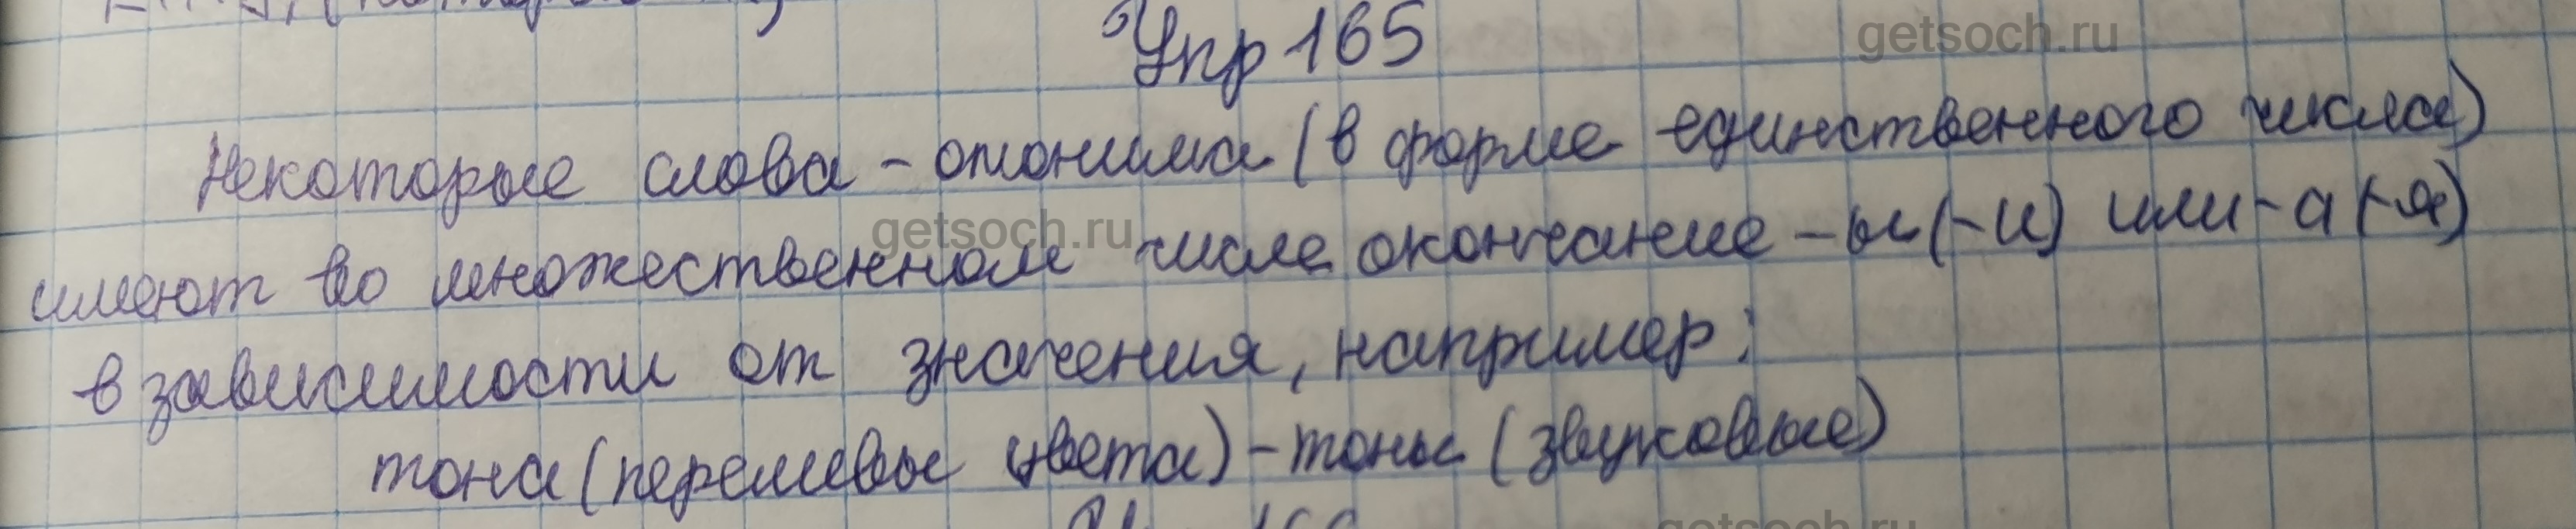 Упр 165
getsoch.ru
Некоторые слова - омонима (в форме единственного числа)
getsoch.ru
имеют во множественном числе окончание -ы (-и) или -а (-я)
в зависимости от значения, например:
тона (перемевы цвета) - тоны (звуковые)
getsoch.ru